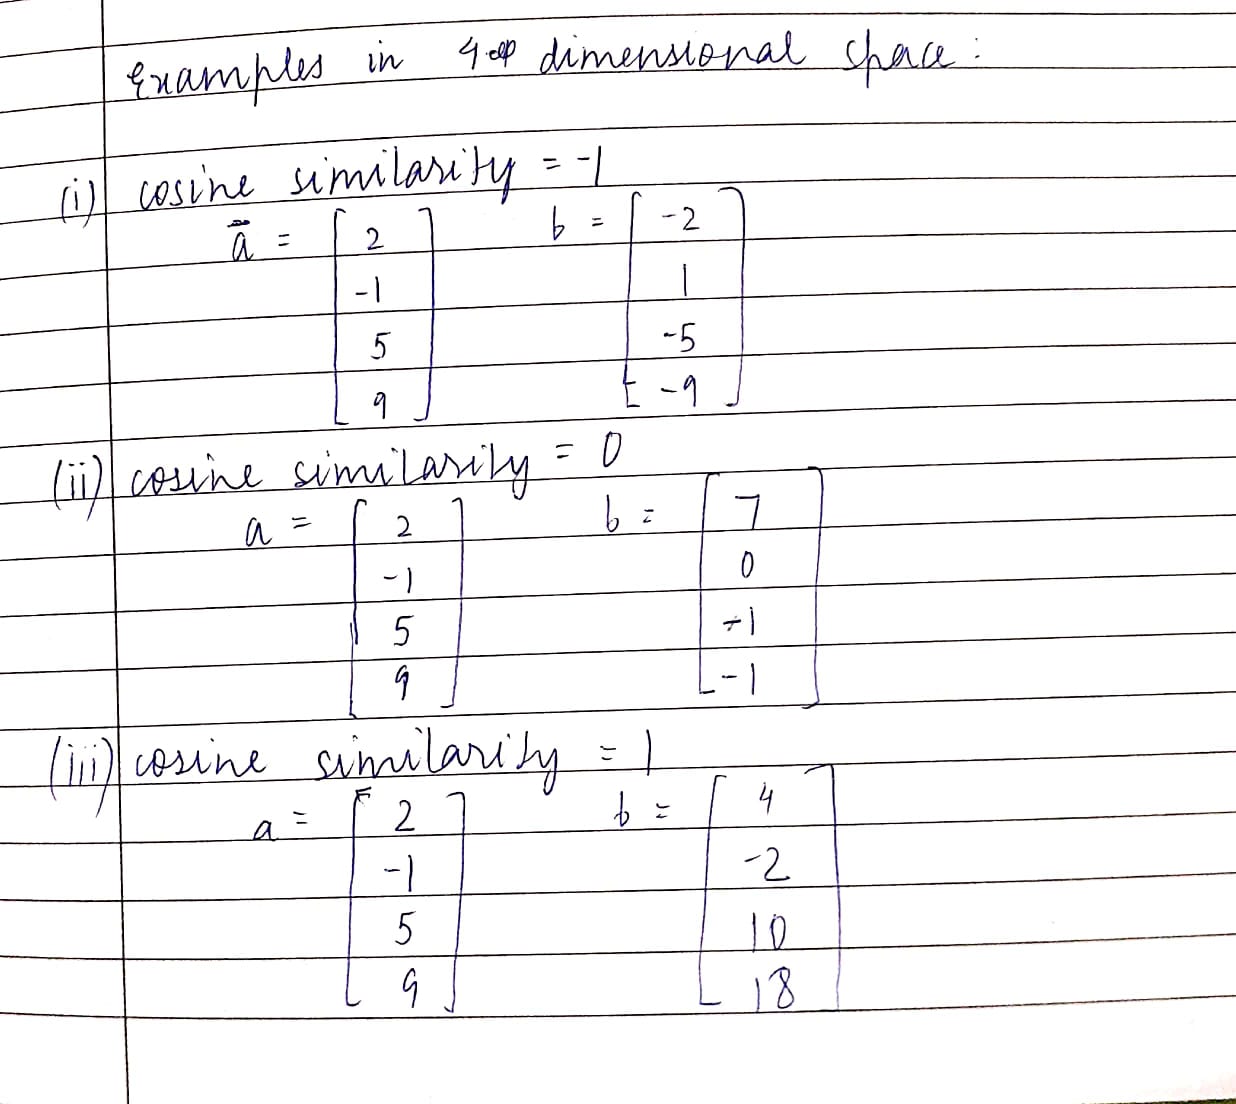 Examples in 4 dimensional space:
(i) cosine similarity = -1
a = [ 2 b = [ -2 ]
-1 1
5 -5
9 ] -9 ]
(ii) cosine similarity = 0
a = [ 2 ] b = [ 7 ]
-1 0
5 -1
9 -1
(iii) cosine similarity = 1
a = [ 2 ] b = [ 4 ]
-1 -2
5 10
9 18